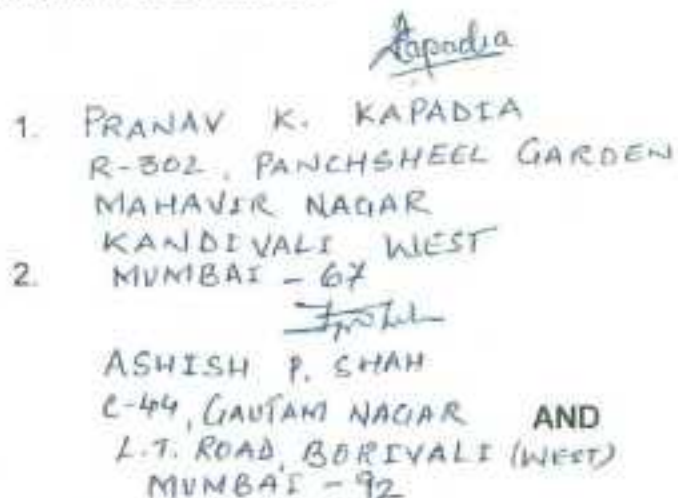 Kapadia
1. PRANAV K. KAPADIA
R-302, PANCHSHEEL GARDEN
MAHAVIR NAGAR
KANDIVALI WEST
2. MUMBAI - 67
ASHISH P. SHAH
C-44, GAUTAM NAGAR AND
L.T. ROAD, BORIVALI (WEST)
MUMBAI - 92